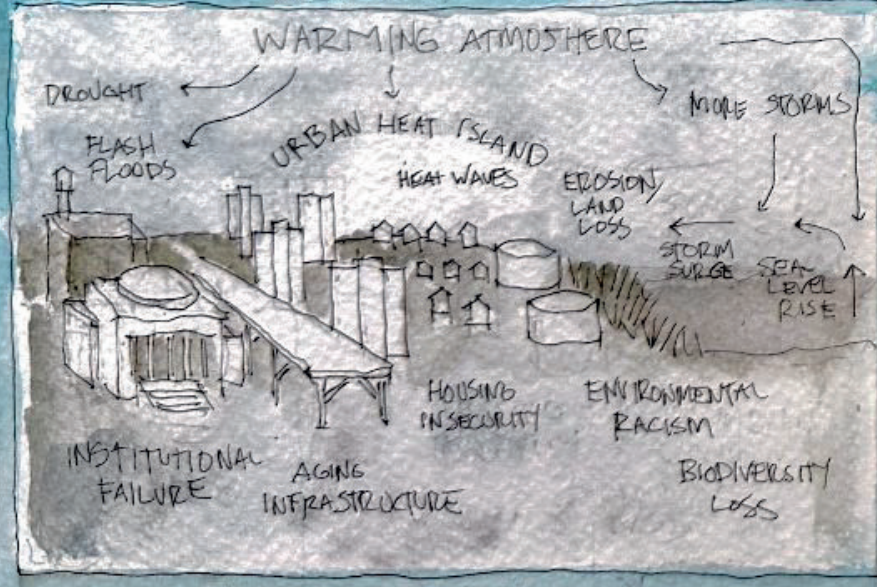 WARMING ATMOSHERE
DROUGHT
MORE STORMS
FLASH
FLOODS
URBAN HEAT ISLAND
HEAT WAVES
EROSION/
LAND
LOSS
STORM
SURGE
SEA
LEVEL
RISE
HOUSING
INSECURITY
ENVIRONMENTAL
RACISM
INSTITUTIONAL
FAILURE
AGING
INFRASTRUCTURE
BIODIVERSITY
LOSS